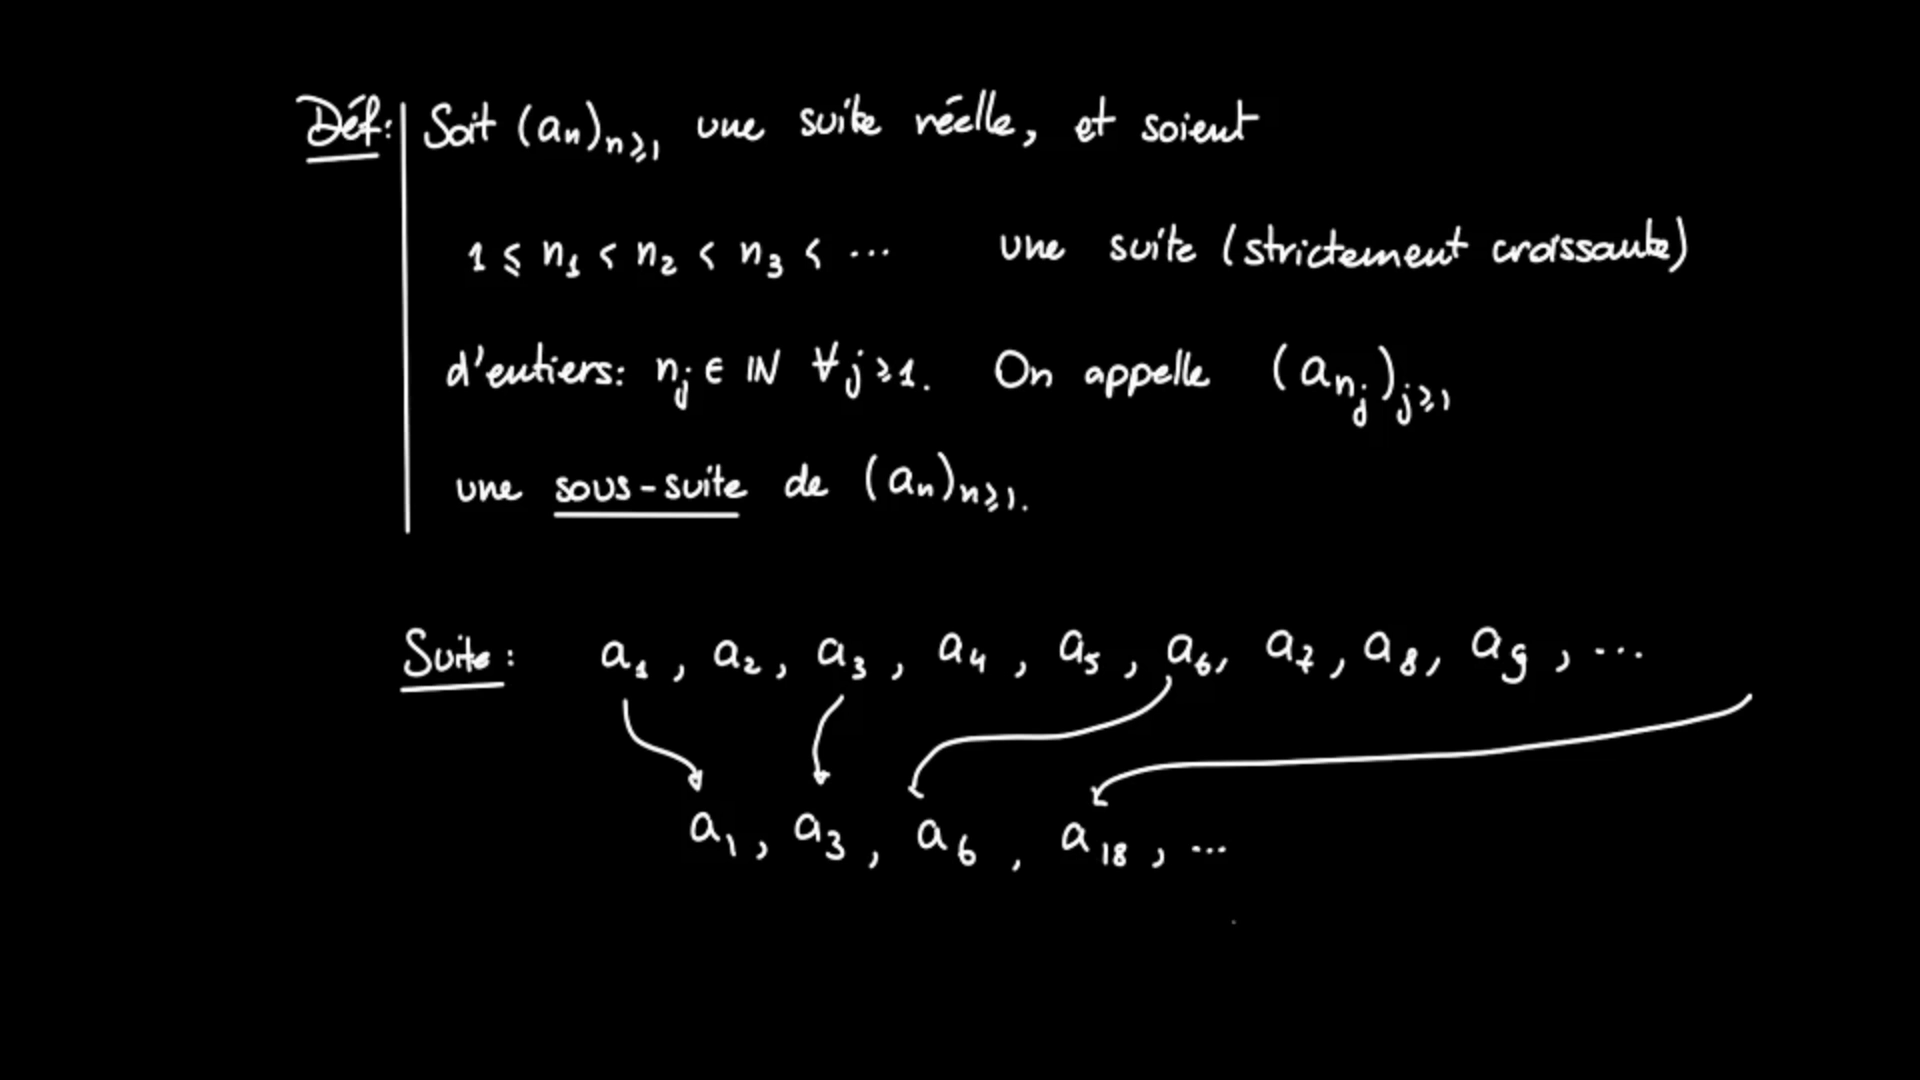 Déf: Soit (aₙ)ₙ⩾₁ une suite réelle, et soient
1 ⩽ n₁ < n₂ < n₃ < ··· une suite (strictement croissante)
d'entiers: nⱼ ∈ ℕ ∀ j ⩾ 1. On appelle (a_{nⱼ})_{j⩾1}
une sous-suite de (aₙ)ₙ⩾₁.
Suite: a₁, a₂, a₃, a₄, a₅, a₆, a₇, a₈, a₉, ···
a₁, a₃, a₆, a₁₈, ···